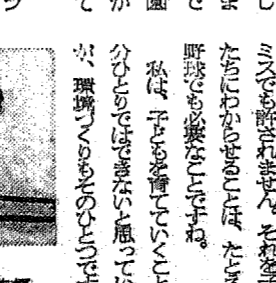 ミスでも許されません。それを
たちにわからせることは、たとえ
野球でも必要なことですね。
私は、子どもを育てていくこと
分ひとりではできないと思ってい
が、環境づくりもそのひとつです